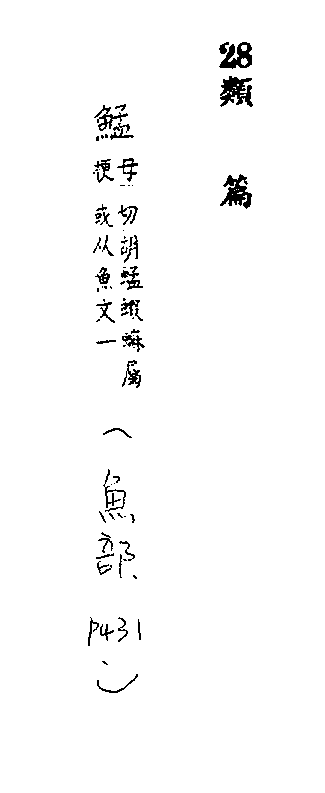 28類篇
鯭母梗切胡蜢蝦蟆屬或从魚文一（魚部P431）